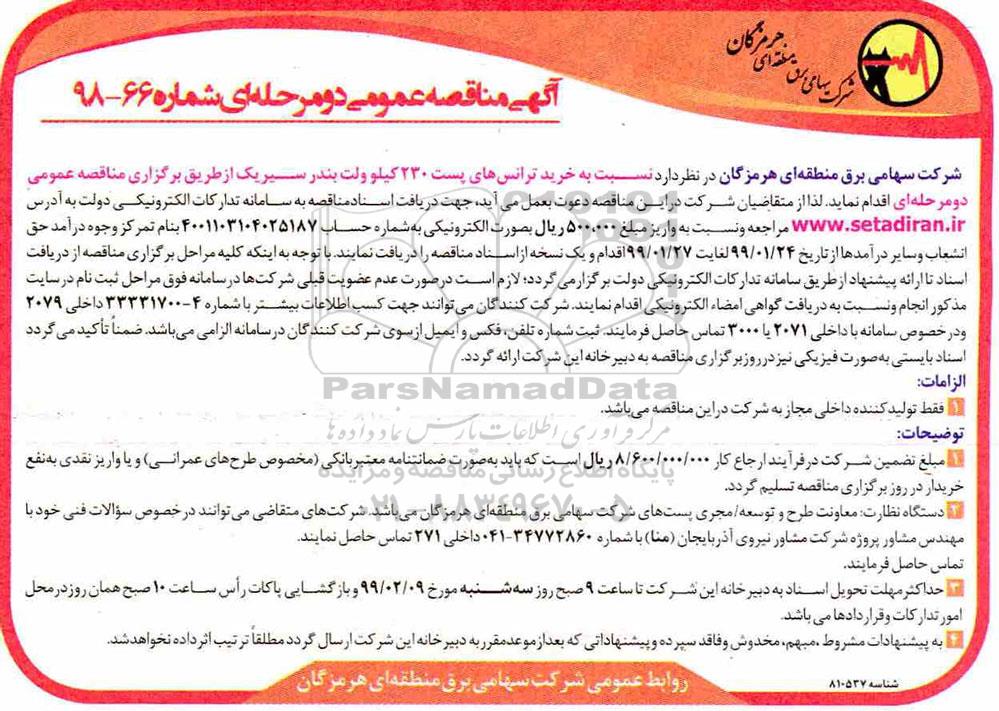 شرکت سهامی برق منطقه‌ای هرمزگان
آگهی مناقصه عمومی دو مرحله‌ای شماره ۶۶-۹۸
شرکت سهامی برق منطقه‌ای هرمزگان در نظر دارد نسبت به خرید ترانس‌های پست ۲۳۰ کیلو ولت بندر سیریک از طریق برگزاری مناقصه عمومی
دو مرحله‌ای اقدام نماید. لذا از متقاضیان شرکت در این مناقصه دعوت بعمل می آید، جهت دریافت اسناد مناقصه به سامانه تدارکات الکترونیکی دولت به آدرس
www.setadiran.ir مراجعه ونسبت به واریز مبلغ ۵۰۰,۰۰۰ ریال بصورت الکترونیکی به شماره حساب ۴۰۰۱۱۰۳۱۰۴۰۲۵۱۸۷ بنام تمرکز وجوه درآمد حق
انشعاب وسایر درآمدها از تاریخ ۹۹/۰۱/۲۴ لغایت ۹۹/۰۱/۲۷ اقدام و یک نسخه از اسناد مناقصه را دریافت نمایند. با توجه به اینکه کلیه مراحل برگزاری مناقصه از دریافت
اسناد تا ارائه پیشنهاد از طریق سامانه تدارکات الکترونیکی دولت برگزار می گردد؛ لازم است در صورت عدم عضویت قبلی شرکت‌ها در سامانه فوق مراحل ثبت نام در سایت
مذکور انجام ونسبت به دریافت گواهی امضاء الکترونیکی اقدام نمایند. شرکت کنندگان می‌توانند جهت کسب اطلاعات بیشتر با شماره ۴-۳۳۳۳۱۷۰۰ داخلی ۲۰۷۹
ودرخصوص سامانه با داخلی ۲۰۷۱ یا ۳۰۰۰ تماس حاصل فرمایند. ثبت شماره تلفن، فکس و ایمیل از سوی شرکت کنندگان در سامانه الزامی می‌باشد. ضمناً تأکید می گردد
اسناد بایستی به‌صورت فیزیکی نیز در روز برگزاری مناقصه به دبیرخانه این شرکت ارائه گردد.
الزامات:
۱ فقط تولید کننده داخلی مجاز به شرکت در این مناقصه می‌باشد.
توضیحات:
۱ مبلغ تضمین شرکت در فرآیند ارجاع کار ۸/۶۰۰/۰۰۰/۰۰۰ ریال است که باید به‌صورت ضمانتنامه معتبر بانکی (مخصوص طرح‌های عمرانی) و یا واریز نقدی به‌نفع
خریدار در روز برگزاری مناقصه تسلیم گردد.
۲ دستگاه نظارت: معاونت طرح و توسعه/مجری پست‌های شرکت سهامی برق منطقه‌ای هرمزگان می‌باشد. شرکت‌های متقاضی می‌توانند در خصوص سؤالات فنی خود با
مهندس مشاور پروژه شرکت مشاور نیروی آذربایجان (منا) با شماره ۳۴۷۷۲۸۶۰-۰۴۱ داخلی ۲۷۱ تماس حاصل نمایند.
تماس حاصل فرمایند.
۳ حداکثر مهلت تحویل اسناد به دبیرخانه این شرکت تا ساعت ۹ صبح روز سه‌شنبه مورخ ۹۹/۰۲/۰۹ و بازگشایی پاکات رأس ساعت ۱۰ صبح همان روز در محل
امور تدارکات وقراردادها می باشد.
۴ به پیشنهادات مشروط ،مبهم، مخدوش وفاقد سپرده و پیشنهاداتی که بعد از موعد مقرر به دبیرخانه این شرکت ارسال گردد مطلقاً ترتیب اثر داده نخواهد شد.
شناسه ۸۱۰۵۳۷
روابط عمومی شرکت سهامی برق منطقه‌ای هرمزگان
ParsNamadData
مرکز فرآوری اطلاعات پارس نماد داده ها
پایگاه اطلاع رسانی مناقصه و مزایده
۰۲۱-۸۸۳۴۹۶۷۰-۵